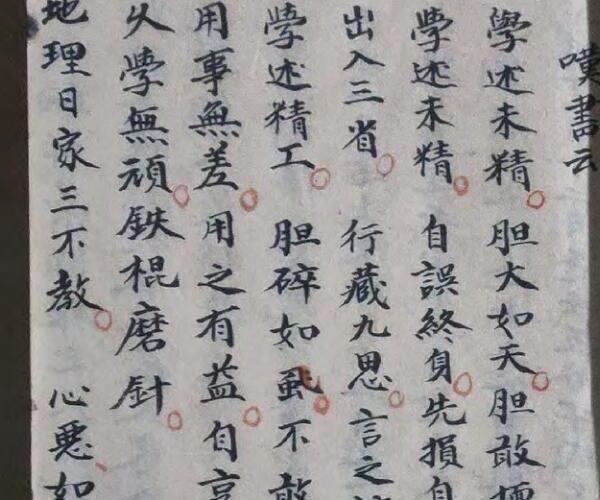 嘆書云
學述未精胆大如天胆敢
學述未精自誤終身先損自
出入三省行藏九思言之
學述精工胆碎如虱不敢
用事無差用之有益自高
久學無頑鉄棍磨針
地理日家三不教心悪如